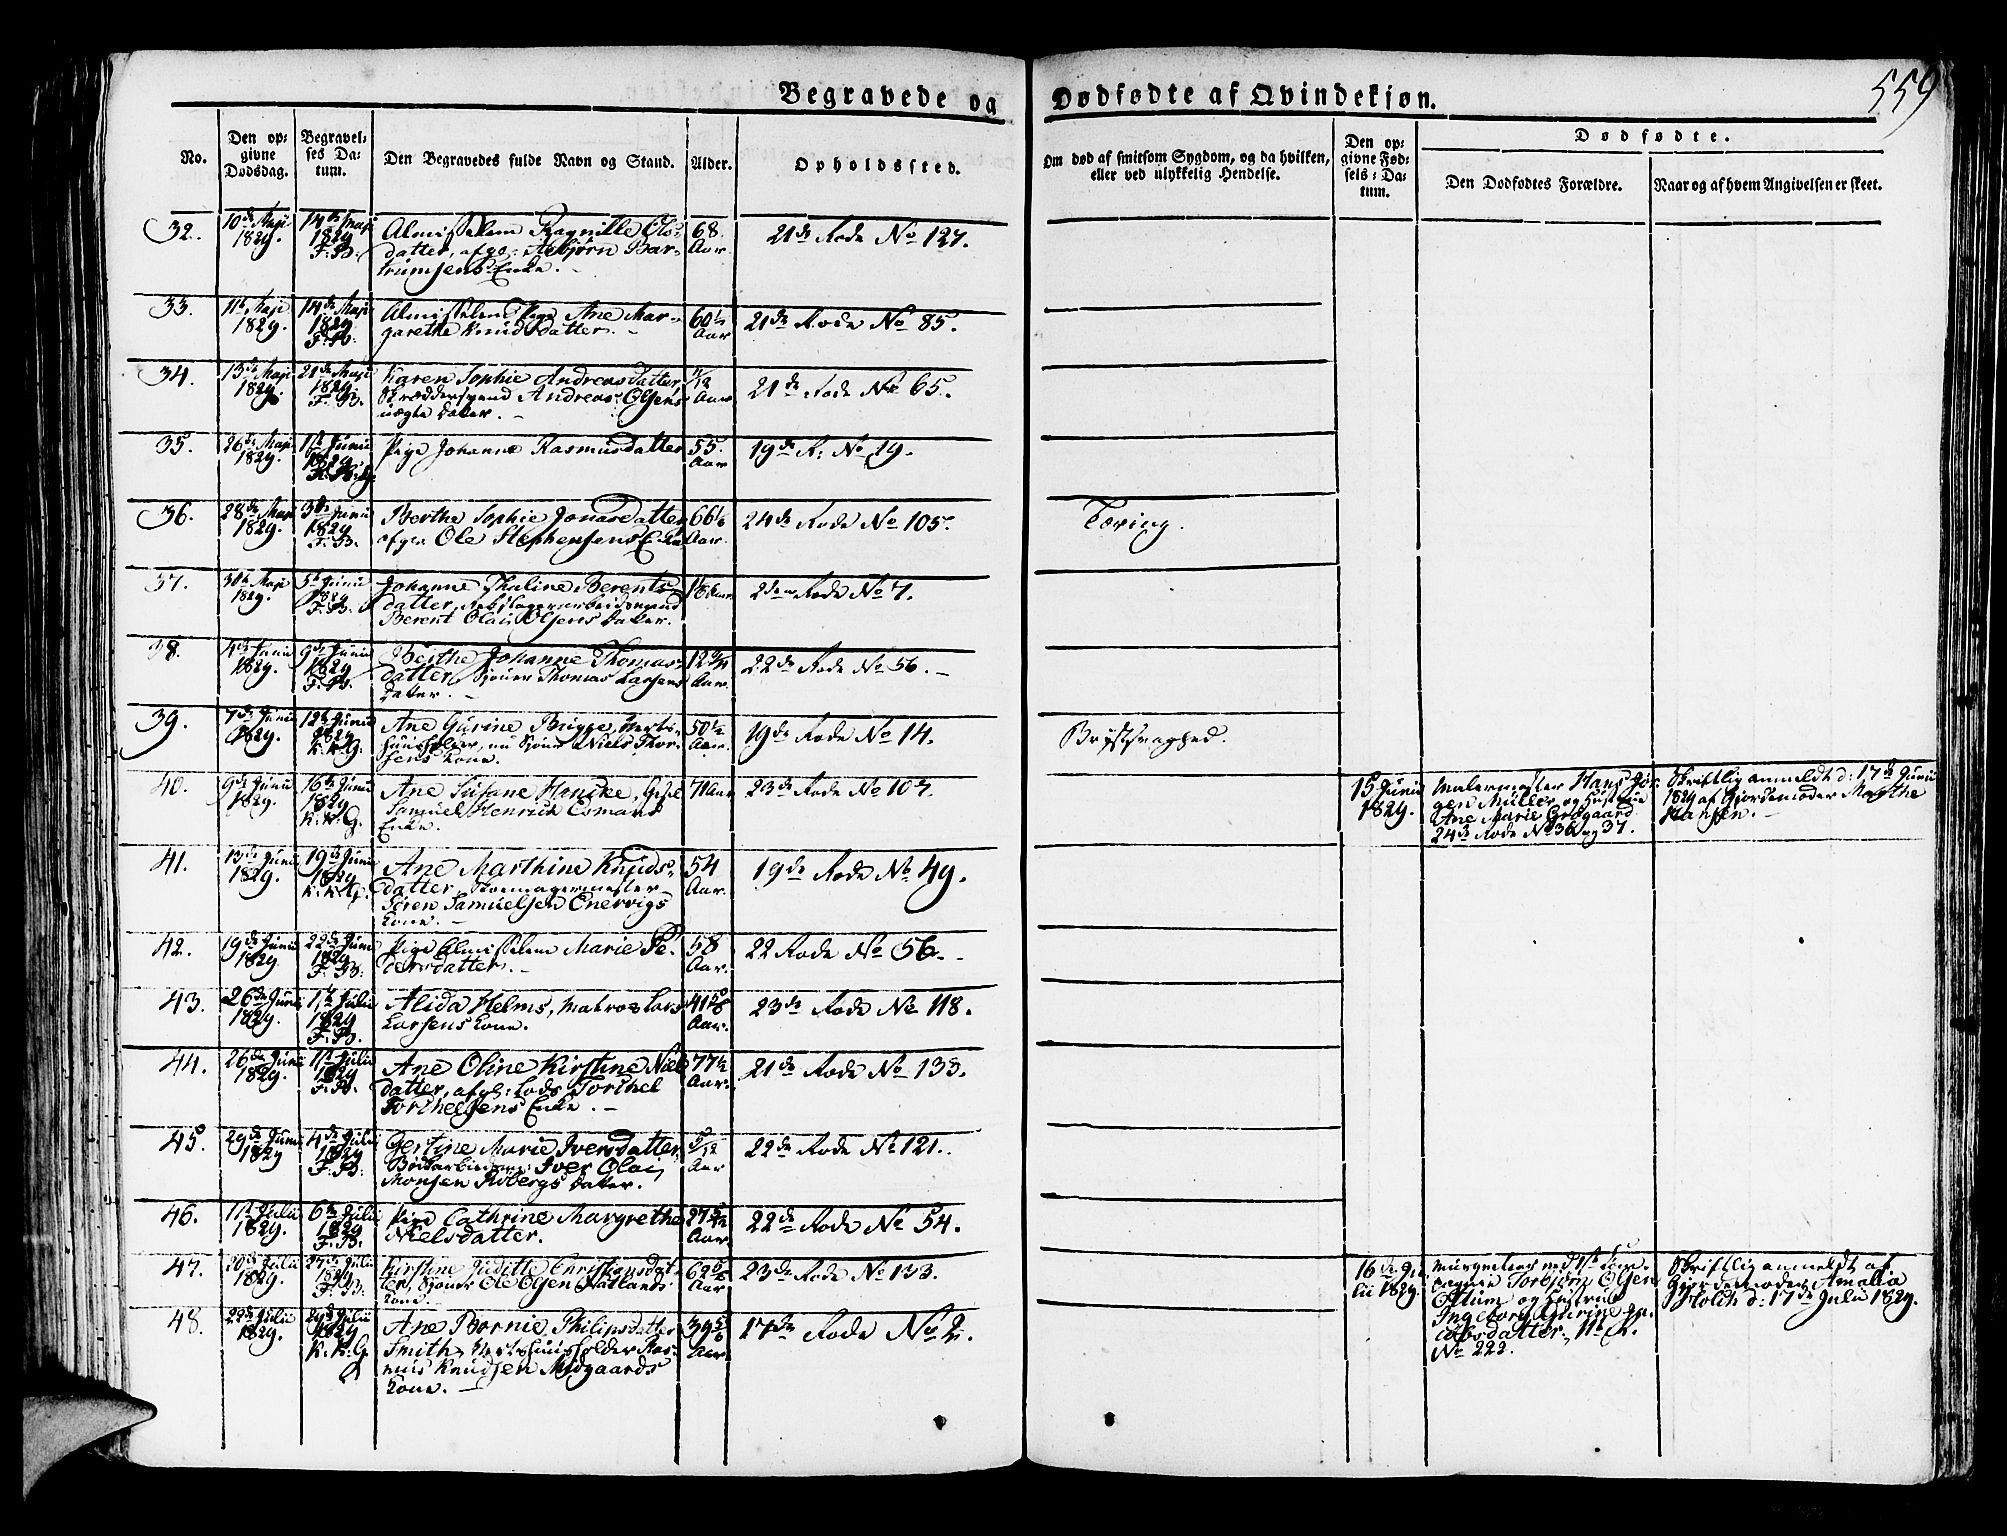 559
Begravede og Dødfødte af Qvindekjøn.
No.
Den op-
givne
Dødsdag.
Begravel-
ses Da-
tum.
Den Begravedes fulde Navn og Stand.
Alder.
Opholdssted.
Om død af smitsom Sygdom, og da hvilken,
eller ved ulykkelig Hendelse.
Den op-
givne Fød-
sels-Da-
tum.
Dødfødte.
Den Dødfødtes Forældre.
Naar og af hvem Angivelsen er skeet.
32.
10de Maji
1829.
14de Maji
1829
F. B.
Almisselem Ragnille Ols-
datter, afg: Asbjørn Bar-
trumsens Enke.
68.
Aar.
21de Rode No 127.
33.
11te Maji
1829.
14de Maji
1829
F. B.
Almisselem Pige Ane Mar-
garethe Knudsdatter.
60½
Aar
21de Rode No 85.
34.
13de Maji
1829.
21de Maji
1829.
F. B.
Karen Sophie Andreasdatter,
Skræddersvend Andreas Olsens
uægte Datter.
/12
Aar
21de Rode No 65.
35.
26de Maji
1829.
1te Junii
1829
Pige Johanne Rasmusdatter
55.
Aar
19de R: No 19.
36.
28de Maji
1829.
3de Junii
1829
F. B.
Berthe Sophie Jonasdatter
afg: Ole Stephensens Enke
66½
Aar.
24de Rode No 105.
Tæring.
37.
30te Maji
1829.
5te Junii
1829
F. B.
Johanne Thaline Berents-
datter, Rebslagerarbeidsmand
Berent Olai Olsens Datter.
Aar
Rode No 7.
38.
4de Junii
1829.
9de Junii
1829
F. B.
Berthe Johanne Thomas-
datter, Sjouer Thomas Larsens
Datter.
12
Aar.
22de Rode No 56.
39.
7de Junii
1829.
12te Junii
1829
K. K. G.
Ane Gurine Brigge, Værts-
huusholder, nu Sjouer Niels Thor-
sens Kone.
50½
Aar.
19de Rode No 14.
Brystsvaghed.
40.
9de Junii
1829.
16de Junii
1829
K. K. G.
Ane Susane Hancke,
Samuel Henrich Esmans
Enke.
71 Aar
23de Rode No 107.
15 Junii
1829.
Malermester Hans Jør-
gen Müller og Hustrue
Ane Marie Grøgaard
24de Rode No 36 og 37.
Skriftlig anmeldt d: 17de Junii
1829 af Gjordemoder Marthe
Hansen.
41.
13de Junii
1829.
19de Junii
1829
K. K. G.
Ane Marthine Knuds-
datter, Skoemagermester
Søren Samuelsen Enervigs
Kone.
54
Aar.
19de Rode No 49.
42.
19de Junii
1829
22de Junii
1829
F. B.
Pige Almisselem Marie Pe-
dersdatter.
58
Aar.
22 Rode No 56.
43.
26de Junii
1829.
1te Julii
1829
F. B.
Alida Helms, Matros Lars
Larsens Kone.
41
Aar.
23de Rode No 118.
44.
26de Junii
1829.
1te Julii
1829
F. B.
Ane Oline Kirstine Niels
datter, afg: Lods Torchel
Torchelsens Enke.
77½
Aar.
21de Rode No 133.
45.
29de Junii
1829
4de Julii
1829
F. B.
Gertine Marie Iversdatter
Iver Olai
Monsen Robergs Datter.
5/12
Aar
22de Rode No 121.
46.
1te Julii
1829.
6te Julii
1829
F. B.
Pige Cathrine Margrethe
Nielsdatter.
27
Aar.
22de Rode No 54.
47.
20de Julii
1829.
27de Julii
1829
F. B.
Kirstine Juditte Christiansdat-
ter, Sjouer Ole Olsen Hatlands
Kone.
62
Aar
23de Rode No 133.
16de Ju-
lii 1829.
Murmester ved 1ste Com-
pagnie Torbjørn Olsen
Østum og Hustrue
Ingeborg Gurine Ja-
cobsdatter, 11te R.
No 222.
Skriftlig anmeldt af
Gjordemoder Amalia
Holch d: 17de Julii 1829.
48.
22de Julii
1829.
29de Julii
1829
K. K. G
Ane Bornie Philipsdatter
Smith, Værtshuusholder Ras-
mus Knudsen Midgaards
Kone.
39
Aar
17de Rode No 2.